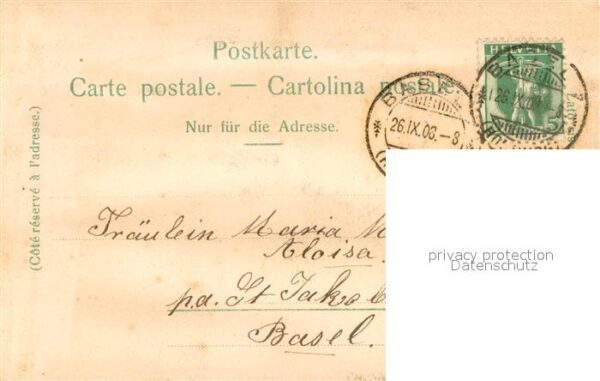 Postkarte.
Carte postale. — Cartolina postale.
Nur für die Adresse.
(Côté réservé à l'adresse.)
HELVETIA
BASEL
26.IX.08.–8
BASEL
Fräulein Maria M
Aloisa.
pa. St Jakob
Basel.
privacy protection
Datenschutz